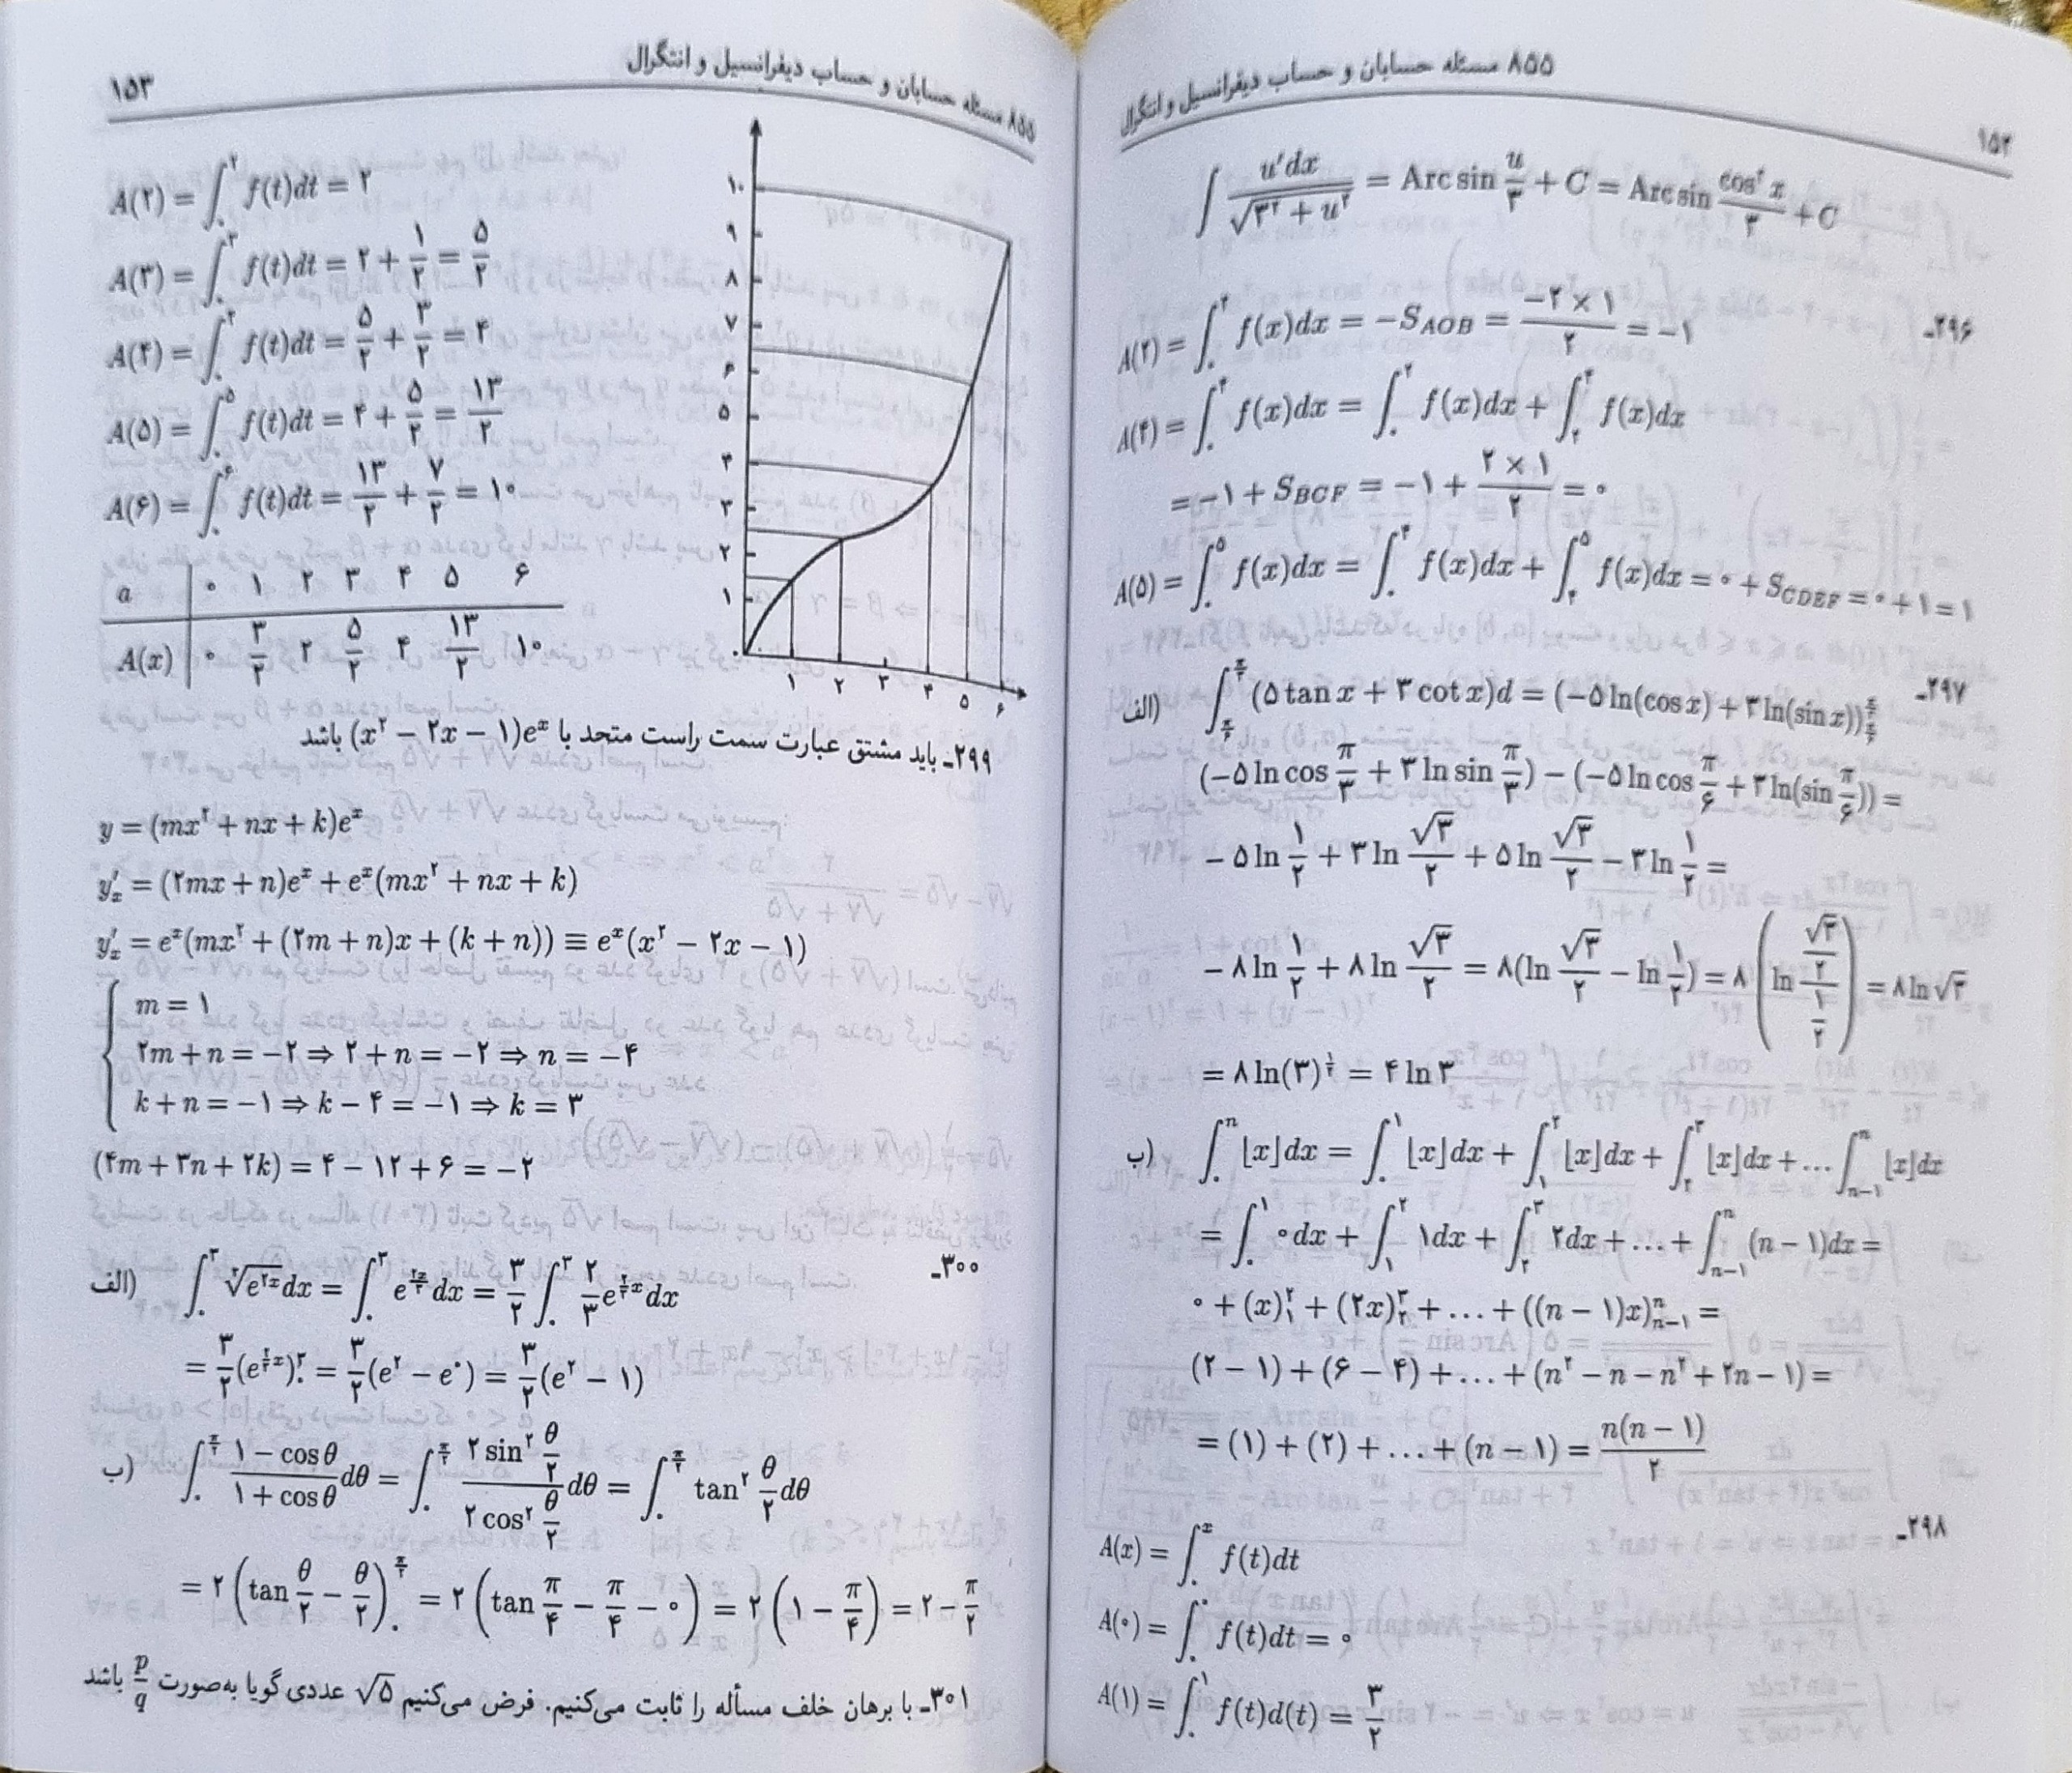 ۸۵۵ مسئله حسابان و حساب دیفرانسیل و انتگرال
۱۵۲
∫ u'dx / √(۳² + u²) = Arc sin u/۳ + C = Arc sin cos² x/۳ + C
۲۹۶ـ
A(۲) = ∫₀^۲ f(x)dx = −S_AOB = (−۲ × ۱)/۲ = −۱
A(۴) = ∫₀^۴ f(x)dx = ∫₀^۲ f(x)dx + ∫₂^۴ f(x)dx
= −۱ + S_BCF = −۱ + (۲ × ۱)/۲ = ۰
A(۵) = ∫₀^۵ f(x)dx = ∫₀^۴ f(x)dx + ∫₄^۵ f(x)dx = ۰ + S_CDEF = ۰ + ۱ = ۱
۲۹۷ـ
الف) ∫_{π/۶}^{π/۳} (۵ tan x + ۳ cot x)d = (−۵ ln(cos x) + ۳ ln(sin x))_{π/۶}^{π/۳}
(−۵ ln cos π/۳ + ۳ ln sin π/۳) − (−۵ ln cos π/۶ + ۳ ln(sin π/۶)) =
− ۵ ln ۱/۲ + ۳ ln √۳/۲ + ۵ ln √۳/۲ − ۳ ln ۱/۲ =
− ۸ ln ۱/۲ + ۸ ln √۳/۲ = ۸(ln √۳/۲ − ln ۱/۲) = ۸ (ln (√۳/۲)/(۱/۲)) = ۸ ln √۳
= ۸ ln(۳)^{۱/۲} = ۴ ln ۳
ب) ∫₀^n ⌊x⌋dx = ∫₀^۱ ⌊x⌋dx + ∫₁^۲ ⌊x⌋dx + ∫₂^۳ ⌊x⌋dx + ... ∫_{n−۱}^n ⌊x⌋dx
= ∫₀^۱ ۰dx + ∫₁^۲ ۱dx + ∫₂^۳ ۲dx + ... + ∫_{n−۱}^n (n − ۱)dx =
۰ + (x)₁^۲ + (۲x)₂^۳ + ... + ((n − ۱)x)_{n−۱}^n =
(۲ − ۱) + (۶ − ۴) + ... + (n² − n − n² + ۲n − ۱) =
= (۱) + (۲) + ... + (n − ۱) = n(n − ۱)/۲
۲۹۸ـ
A(x) = ∫₀^x f(t)dt
A(۰) = ∫₀^۰ f(t)dt = ۰
A(۱) = ∫₀^۱ f(t)d(t) = ۳/۲
۸۵۵ مسئله حسابان و حساب دیفرانسیل و انتگرال
۱۵۳
A(۲) = ∫₀^۲ f(t)dt = ۲
A(۳) = ∫₀^۳ f(t)dt = ۲ + ۱/۲ = ۵/۲
A(۴) = ∫₀^۴ f(t)dt = ۵/۲ + ۳/۲ = ۴
A(۵) = ∫₀^۵ f(t)dt = ۴ + ۵/۲ = ۱۳/۲
A(۶) = ∫₀^۶ f(t)dt = ۱۳/۲ + ۷/۲ = ۱۰
a | ۰ ۱ ۲ ۳ ۴ ۵ ۶
A(x) | ۰ ۳/۲ ۲ ۵/۲ ۴ ۱۳/۲ ۱۰
۱۰
۹
۸
۷
۶
۵
۴
۳
۲
۱
۰
۱ ۲ ۳ ۴ ۵ ۶
۲۹۹ـ باید مشتق عبارت سمت راست متحد با (x² − ۲x − ۱)eˣ باشد
y = (mx² + nx + k)eˣ
y'ₓ = (۲mx + n)eˣ + eˣ(mx² + nx + k)
y'ₓ = eˣ(mx² + (۲m + n)x + (k + n)) ≡ eˣ(x² − ۲x − ۱)
m = ۱
۲m + n = −۲ ⇒ ۲ + n = −۲ ⇒ n = −۴
k + n = −۱ ⇒ k − ۴ = −۱ ⇒ k = ۳
(۴m + ۳n + ۲k) = ۴ − ۱۲ + ۶ = −۲
۳۰۰ـ
الف) ∫₀^۳ ∛(e^{۲x})dx = ∫₀^۳ e^{۲x/۳} dx = ۳/۲ ∫₀^۳ ۲/۳ e^{۲/۳ x} dx
= ۳/۲ (e^{۲/۳ x})₀^۳ = ۳/۲ (e² − e⁰) = ۳/۲ (e² − ۱)
ب) ∫₀^{π/۲} (۱ − cos θ)/(۱ + cos θ) dθ = ∫₀^{π/۲} (۲ sin² θ/۲)/(۲ cos² θ/۲) dθ = ∫₀^{π/۲} tan² θ/۲ dθ
= ۲ (tan θ/۲ − θ/۲)₀^{π/۲} = ۲ (tan π/۴ − π/۴ − ۰) = ۲ (۱ − π/۴) = ۲ − π/۲
۳۰۱ـ با برهان خلف مسأله را ثابت می‌کنیم. فرض می‌کنیم √۵ عددی گویا به‌صورت p/q باشد